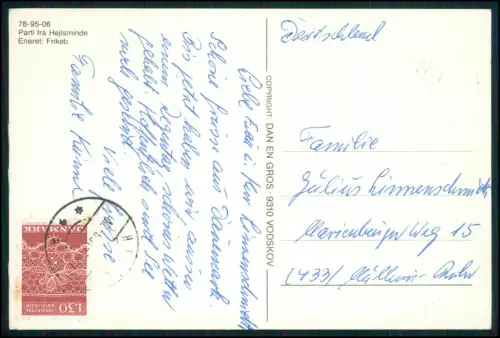 78-95-06
Parti fra Hejlsminde
Eneret: Frikeb.
Liebe Frau u. Herr Linnenschmidt
Schöne Grüsse aus Dänemark.
Bis jetzt haben wir
einen Regentag, schönes Wetter
gehabt. Hoffentlich sind Sie
noch gesund.
Viele Grüsse
Familie
COPYRIGHT: DAN EN GROS · 9310 VODSKOV
Deutschland
Familie
Julius Linnenschmidt
Marienburger Weg 15
(433) Mülheim-Ruhr
DANMARK
1.30